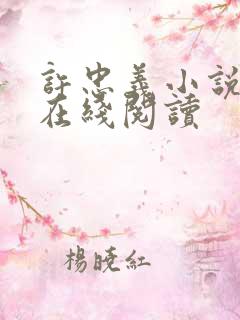 許忠義小說
在綫閱讀
楊曉紅